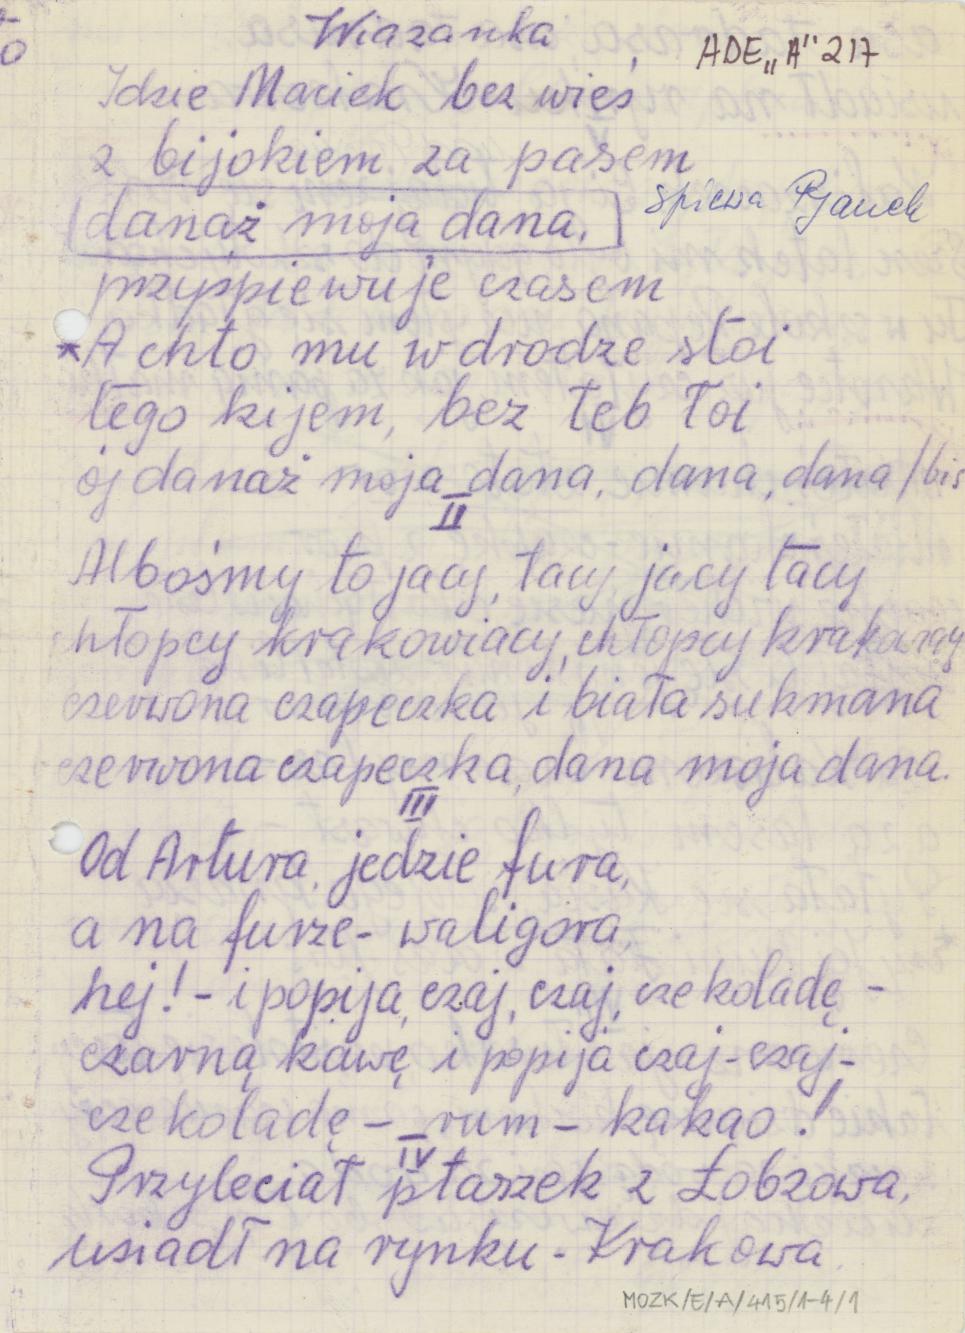 Wiazanka
ADE „A" 217
Idzie Maciek bez wieś
z bijokiem za pasem
danaż moja dana,
śpiewa
przyśpiewuje czasem
*A chto mu w drodze stoi
tego kijem, bez łeb łoi
ój danaż moja dana, dana, dana /bis
II
Albośmy to jacy, tacy jacy tacy
chłopcy krakowiacy, chłopcy krakowiacy
czerwona czapeczka i biała sukmana
czerwona czapeczka, dana moja dana.
III
Od Artura, jedzie fura,
a na furze- waligóra,
hej! - i popija, czaj, czaj, czekoladę -
czarną kawę i popija czaj-czaj-
czekoladę - rum - kakao!
IV
Przyleciał ptaszek z Łobzowa,
usiadł na rynku - Krakowa
MOZK/E/A/415/1-4/1